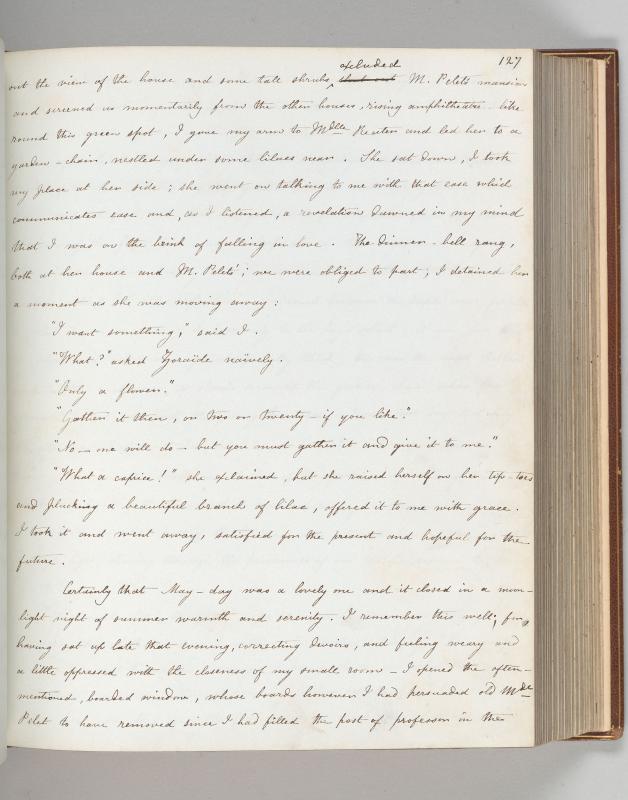 127
excluded
out the view of the house and some tall shrubs ^ shut out M. Pelet's mansion
and screened us momentarily from the other houses, rising amphitheatre-like
round this green spot, I gave my arm to Mdlle Reuter and led her to a
garden-chair, nestled under some lilacs near. She sat down, I took
my place at her side; she went on talking to me with that ease which
communicates ease and, as I listened, a revelation dawned in my mind
that I was on the brink of falling in love. The dinner-bell rang,
both at her house and M. Pelet's; we were obliged to part; I detained her
a moment as she was moving away:
"I want something," said I.
"What?" asked Zoraïde naïvely.
"Only a flower."
"Gather it then, or two or twenty – if you like."
"No – one will do – but you must gather it and give it to me."
"What a caprice!" she exclaimed, but she raised herself on her tip-toes
and plucking a beautiful branch of lilac, offered it to me with grace.
I took it and went away, satisfied for the present and hopeful for the
future.
Certainly that May-day was a lovely one and it closed in a moon-
light night of summer warmth and serenity. I remember this well; for,
having sat up late that evening, correcting devoirs, and feeling weary and
a little oppressed with the closeness of my small room – I opened the often-
mentioned, boarded window, whose boards however I had persuaded old Mde
Pelet to have removed since I had filled the post of professor in the